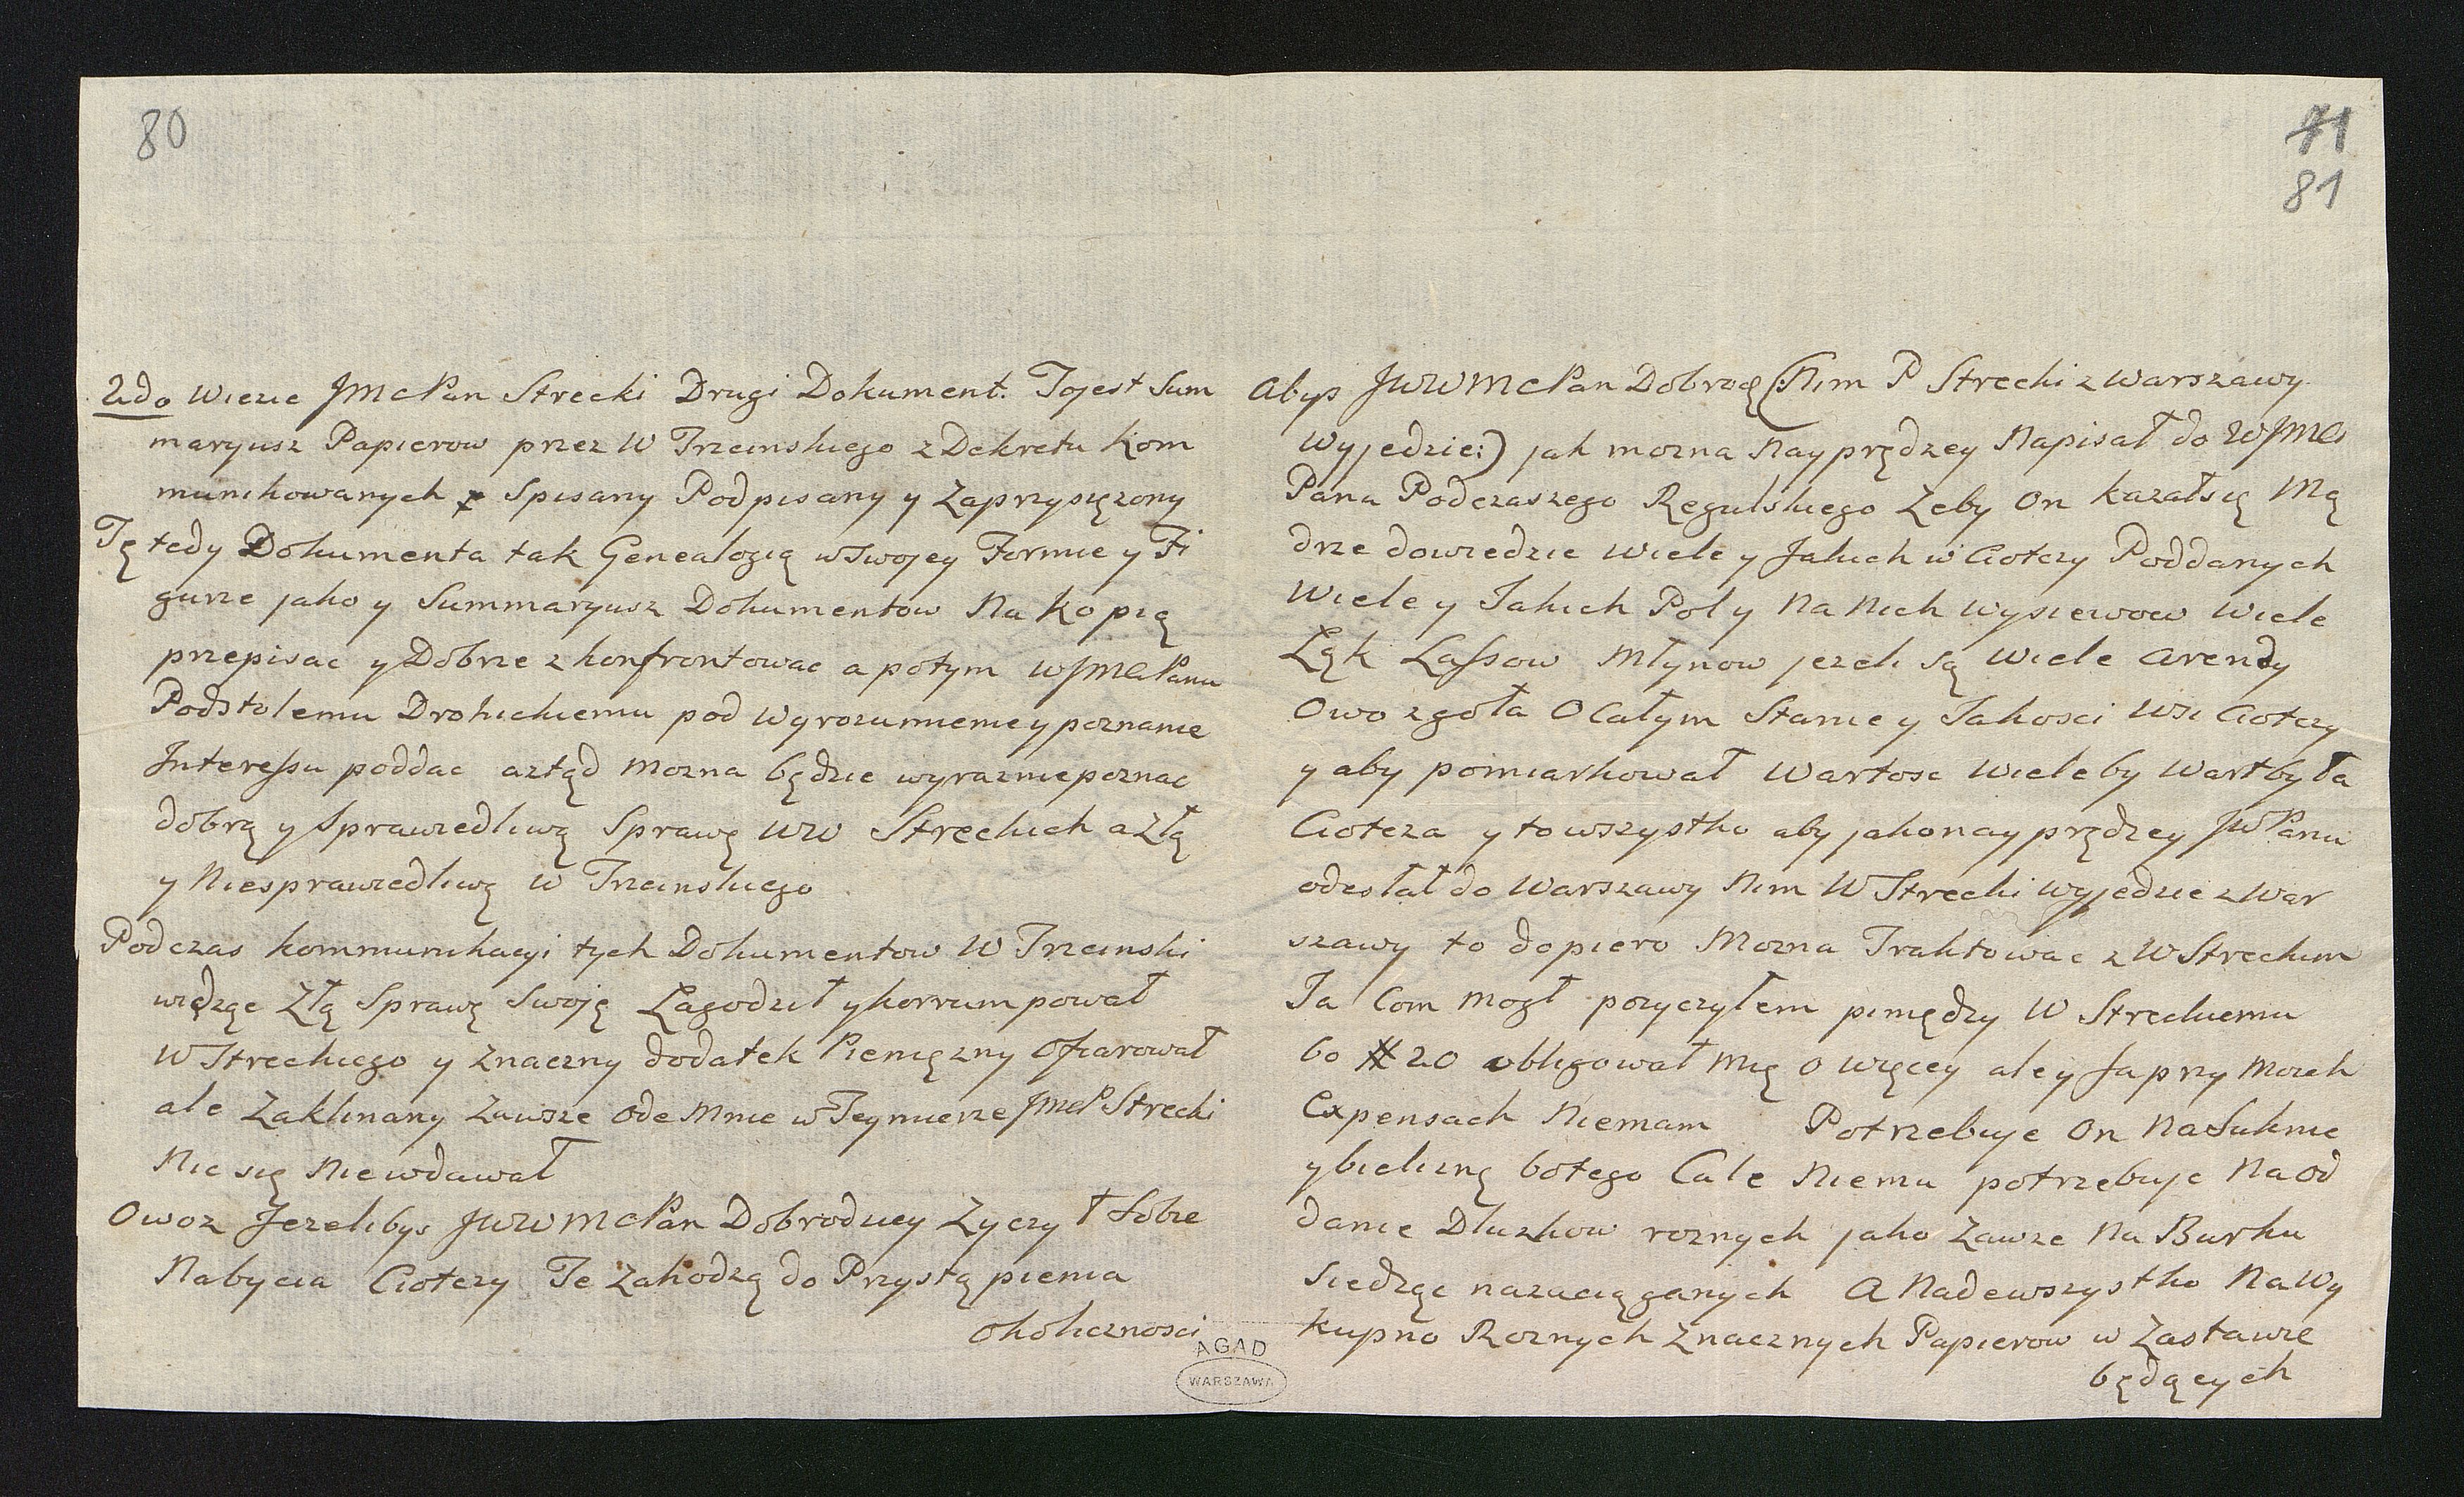 80
2do Wiezie JMcPan Strecki Drugi Dokument. Tojest Sum
maryusz Papierow przez W Trzcinskiego z Dekretu Kom
munikowanych Spisany Podpisany y Zaprzysięzony
Tę tedy Dokumenta tak Genealogią w Swojey Formie y Fi
gurze jako y Summaryusz Dokumentow Na Kopią
przepisac y Dobrze zkonfrontowac a potym WJMCPanu
Podstolemu Drohickiemu pod Wyrozumienie y poznanie
Interessu poddac a ztąd Mozna będzie wyraznie poznac
dobrą y Sprawiedliwą Sprawę WW Streckich a Złą
y Niesprawiedliwą W Trzcinskiego
Podczas kommunikacyi tych Dokumentow W Trzcinski
widząc Złą Sprawę Swoję Łagodził y korrumpował
W Streckiego y Znaczny dodatek Pienięzny Ofiarował
ale Zaklinany Zawsze Ode Mnie w Teymierze JmcP Strecki
Nic się Nie wdawał
Owoz Jezelibys JWWMCPan Dobrodziey Zyczył Sobie
Nabycia Ciotczy Te Zahodzą do Przystąpienia
okolicznosci
AGAD
WARSZAWA
71
81
Abys JWWMCPan Dobrodz (:Nim P Strecki z Warszawy
Wyjedzie:) jak mozna Nayprędzey Napisał do WJMCi
Pana Podczaszego Regulskiego Zeby On kazał się Mą
drze dowiedzie Wiele y Jakich w Ciotczy Poddanych
Wiele y Jakich Pol y Na Nich Wysiewow Wiele
Łąk Lassow Młynow jezeli są Wiele Arendy
Owo zgoła O Całym Stanie y Jakosci Wsi Ciotczy
y aby pomiarkował Wartosc Wieleby Wartbyła
Ciotcza y towszystko aby jakonayprędzey JWPanu
odesłał do Warszawy Nim W Strecki wyjedzie z War
szawy to dopiero Mozna Traktowac z W Streckim
Ja Com Mogł pozyczyłem pimędzy W Streckiemu
bo # 20 obligował Mię o więcey ale y Ja przy Moich
Expensach Niemam Potrzebuje On Na Suknie
y bieliznę botego Cale Niema potrzebuje Na od
danie Dluzkow roznych jako Zawze Na Burku
Siedząc nazaciąganych A Nadewszystko Na Wy
kupno Roznych Znacznych Papierow w Zastawie
będących